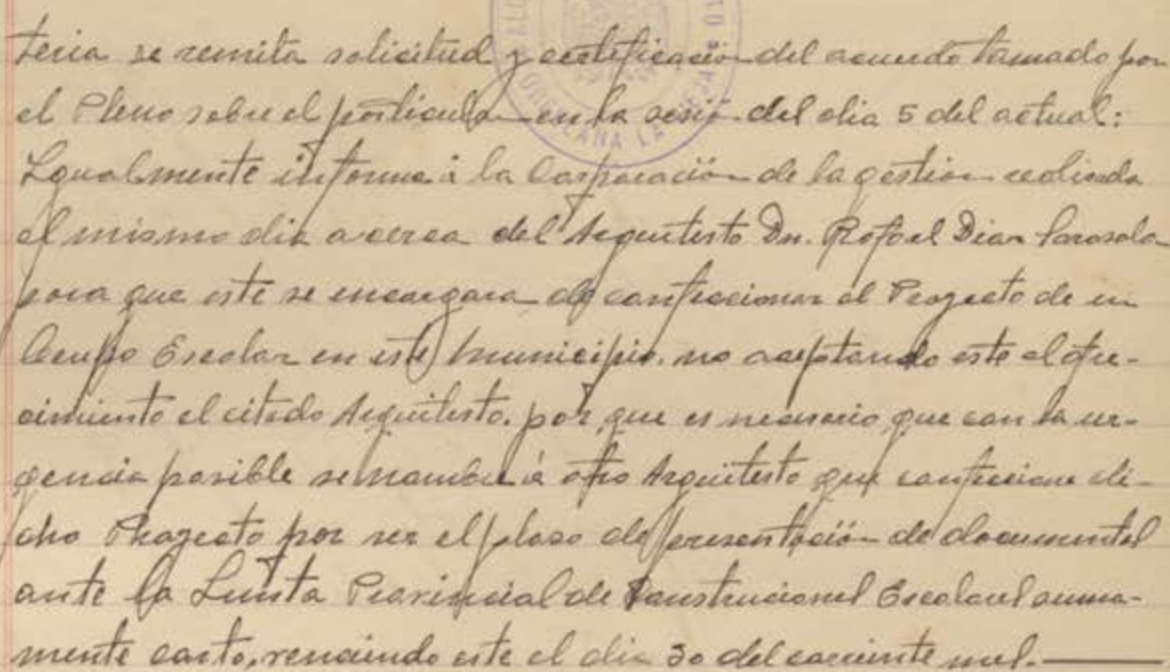 teria se remita solicitud y certificación del acuerdo tomado por
el Pleno sobre el particular en la sesión del dia 5 del actual:
Igualmente informa á la Corporación de la gestion realizada
el mismo dia acerca del Arquitecto Dn. Rafael Diaz
para que este se encargara de confeccionar el Proyecto de un
Grupo Escolar en este Municipio. no aceptando este el ofre-
cimiento el citado Arquitecto. por que es necesario que con la ur-
gencia posible se nombre á otro Arquitecto que confeccione di-
cho Proyecto por ser el plaso de presentación de documental
ante la Junta Provincial de Construciones Escolares suma-
mente corto, venciendo este el dia 30 del corriente mes.
ORELLANA LA VIEJA